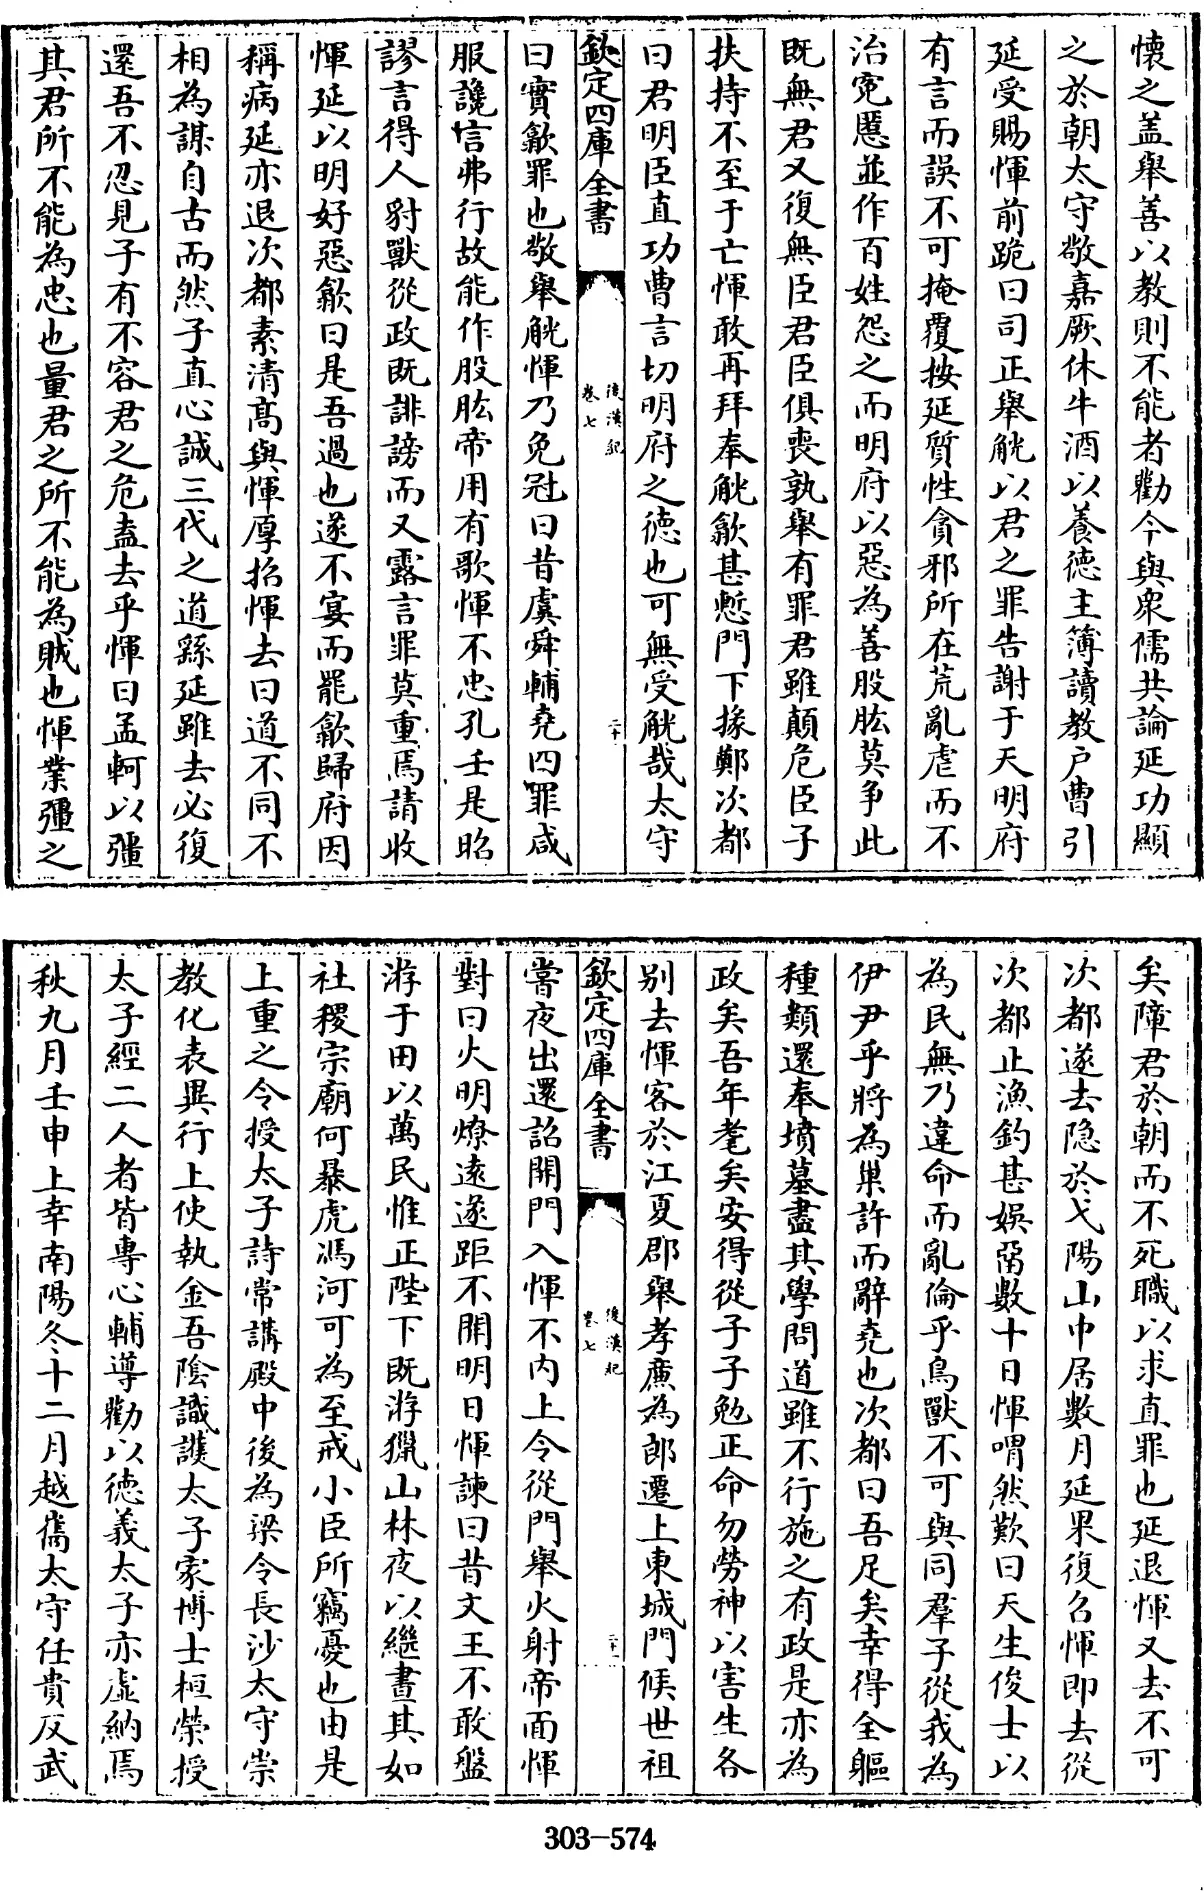 懷之盖舉善以教則不能者勸今與衆儒共論延功顯
之於朝太守敬嘉厥休牛酒以養德主簿讀教户曹引
延受賜惲前跪曰司正舉觥以君之罪告謝于天明府
有言而誤不可掩覆按延質性貪邪所在荒亂虐而不
治寃慝並作百姓怨之而明府以惡為善股肱莫争此
既無君又復無臣君臣俱喪孰舉有罪君雖顛危臣子
扶持不至于亡惲敢再拜奉觥歙甚慙門下掾鄭次都
曰君明臣直功曹言切明府之德也可無受觥哉太守
欽定四庫全書
後漢紀
卷七
二十
曰實歙罪也敬舉觥惲乃免冠曰昔虞舜輔堯四罪咸
服讒言弗行故能作股肱帝用有歌惲不忠孔壬是昭
謬言得人豺獸從政既誹謗而又露言罪莫重焉請收
惲延以明好惡歙曰是吾過也遂不宴而罷歙歸府因
稱病延亦退次都素清髙與惲厚招惲去曰道不同不
相為謀自古而然子直心誠三代之道繇延雖去必復
還吾不忍見子有不容君之危盍去乎惲曰孟軻以彊
其君所不能為忠也量君之所不能為賊也惲業彊之
矣障君於朝而不死職以求直罪也延退惲又去不可
次都遂去隐於弋陽山中居數月延果復召惲即去從
次都止漁釣甚娯留數十日惲喟然歎曰天生俊士以
為民無乃違命而亂倫乎鳥獸不可與同羣子從我為
伊尹乎將為巢許而辭堯也次都曰吾足矣幸得全軀
種類還奉墳墓盡其學問道雖不行施之有政是亦為
政矣吾年耄矣安得從子子勉正命勿勞神以害生各
别去惲客於江夏郡舉孝亷為郎遷上東城門候世祖
欽定四庫全書
後漢紀
卷七
二十一
嘗夜出還詔開門入惲不内上令從門舉火射帝面惲
對曰火明燎遠遂距不開明日惲諫曰昔文王不敢盤
游于田以萬民惟正陛下既游獵山林夜以繼晝其如
社稷宗廟何暴虎馮河可為至戒小臣所竊憂也由是
上重之令授太子詩常講殿中後為梁令長沙太守崇
教化表異行上使執金吾陰識護太子家博士桓榮授
太子經二人者皆專心輔導勸以德義太子亦虚納焉
秋九月壬申上幸南陽冬十二月越巂太守任貴反武
303-574